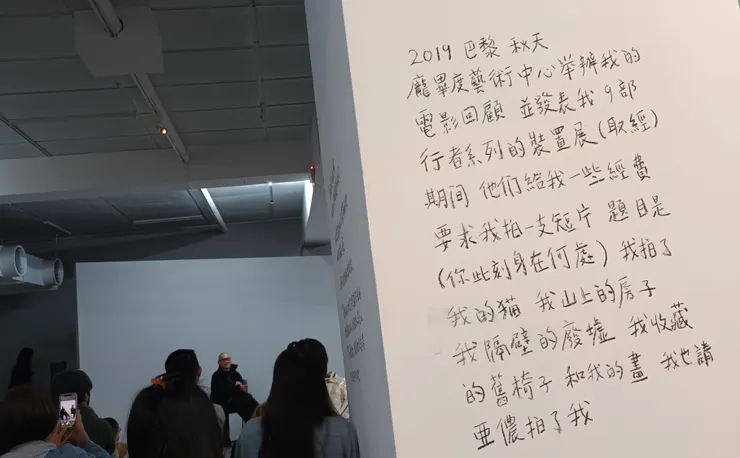 2019 巴黎 秋天
龐畢度藝術中心举辦我的
電影回顧 並發表我 9部
行者系列的裝置展(取經)
期间 他们給我一些經費
要求我拍一支短片 題目是
(你此刻身在何處) 我拍了
我的猫 我山上的房子
我隔壁的廢墟 我收藏
的舊椅子 和我的畫 我也請
亞儂拍了我